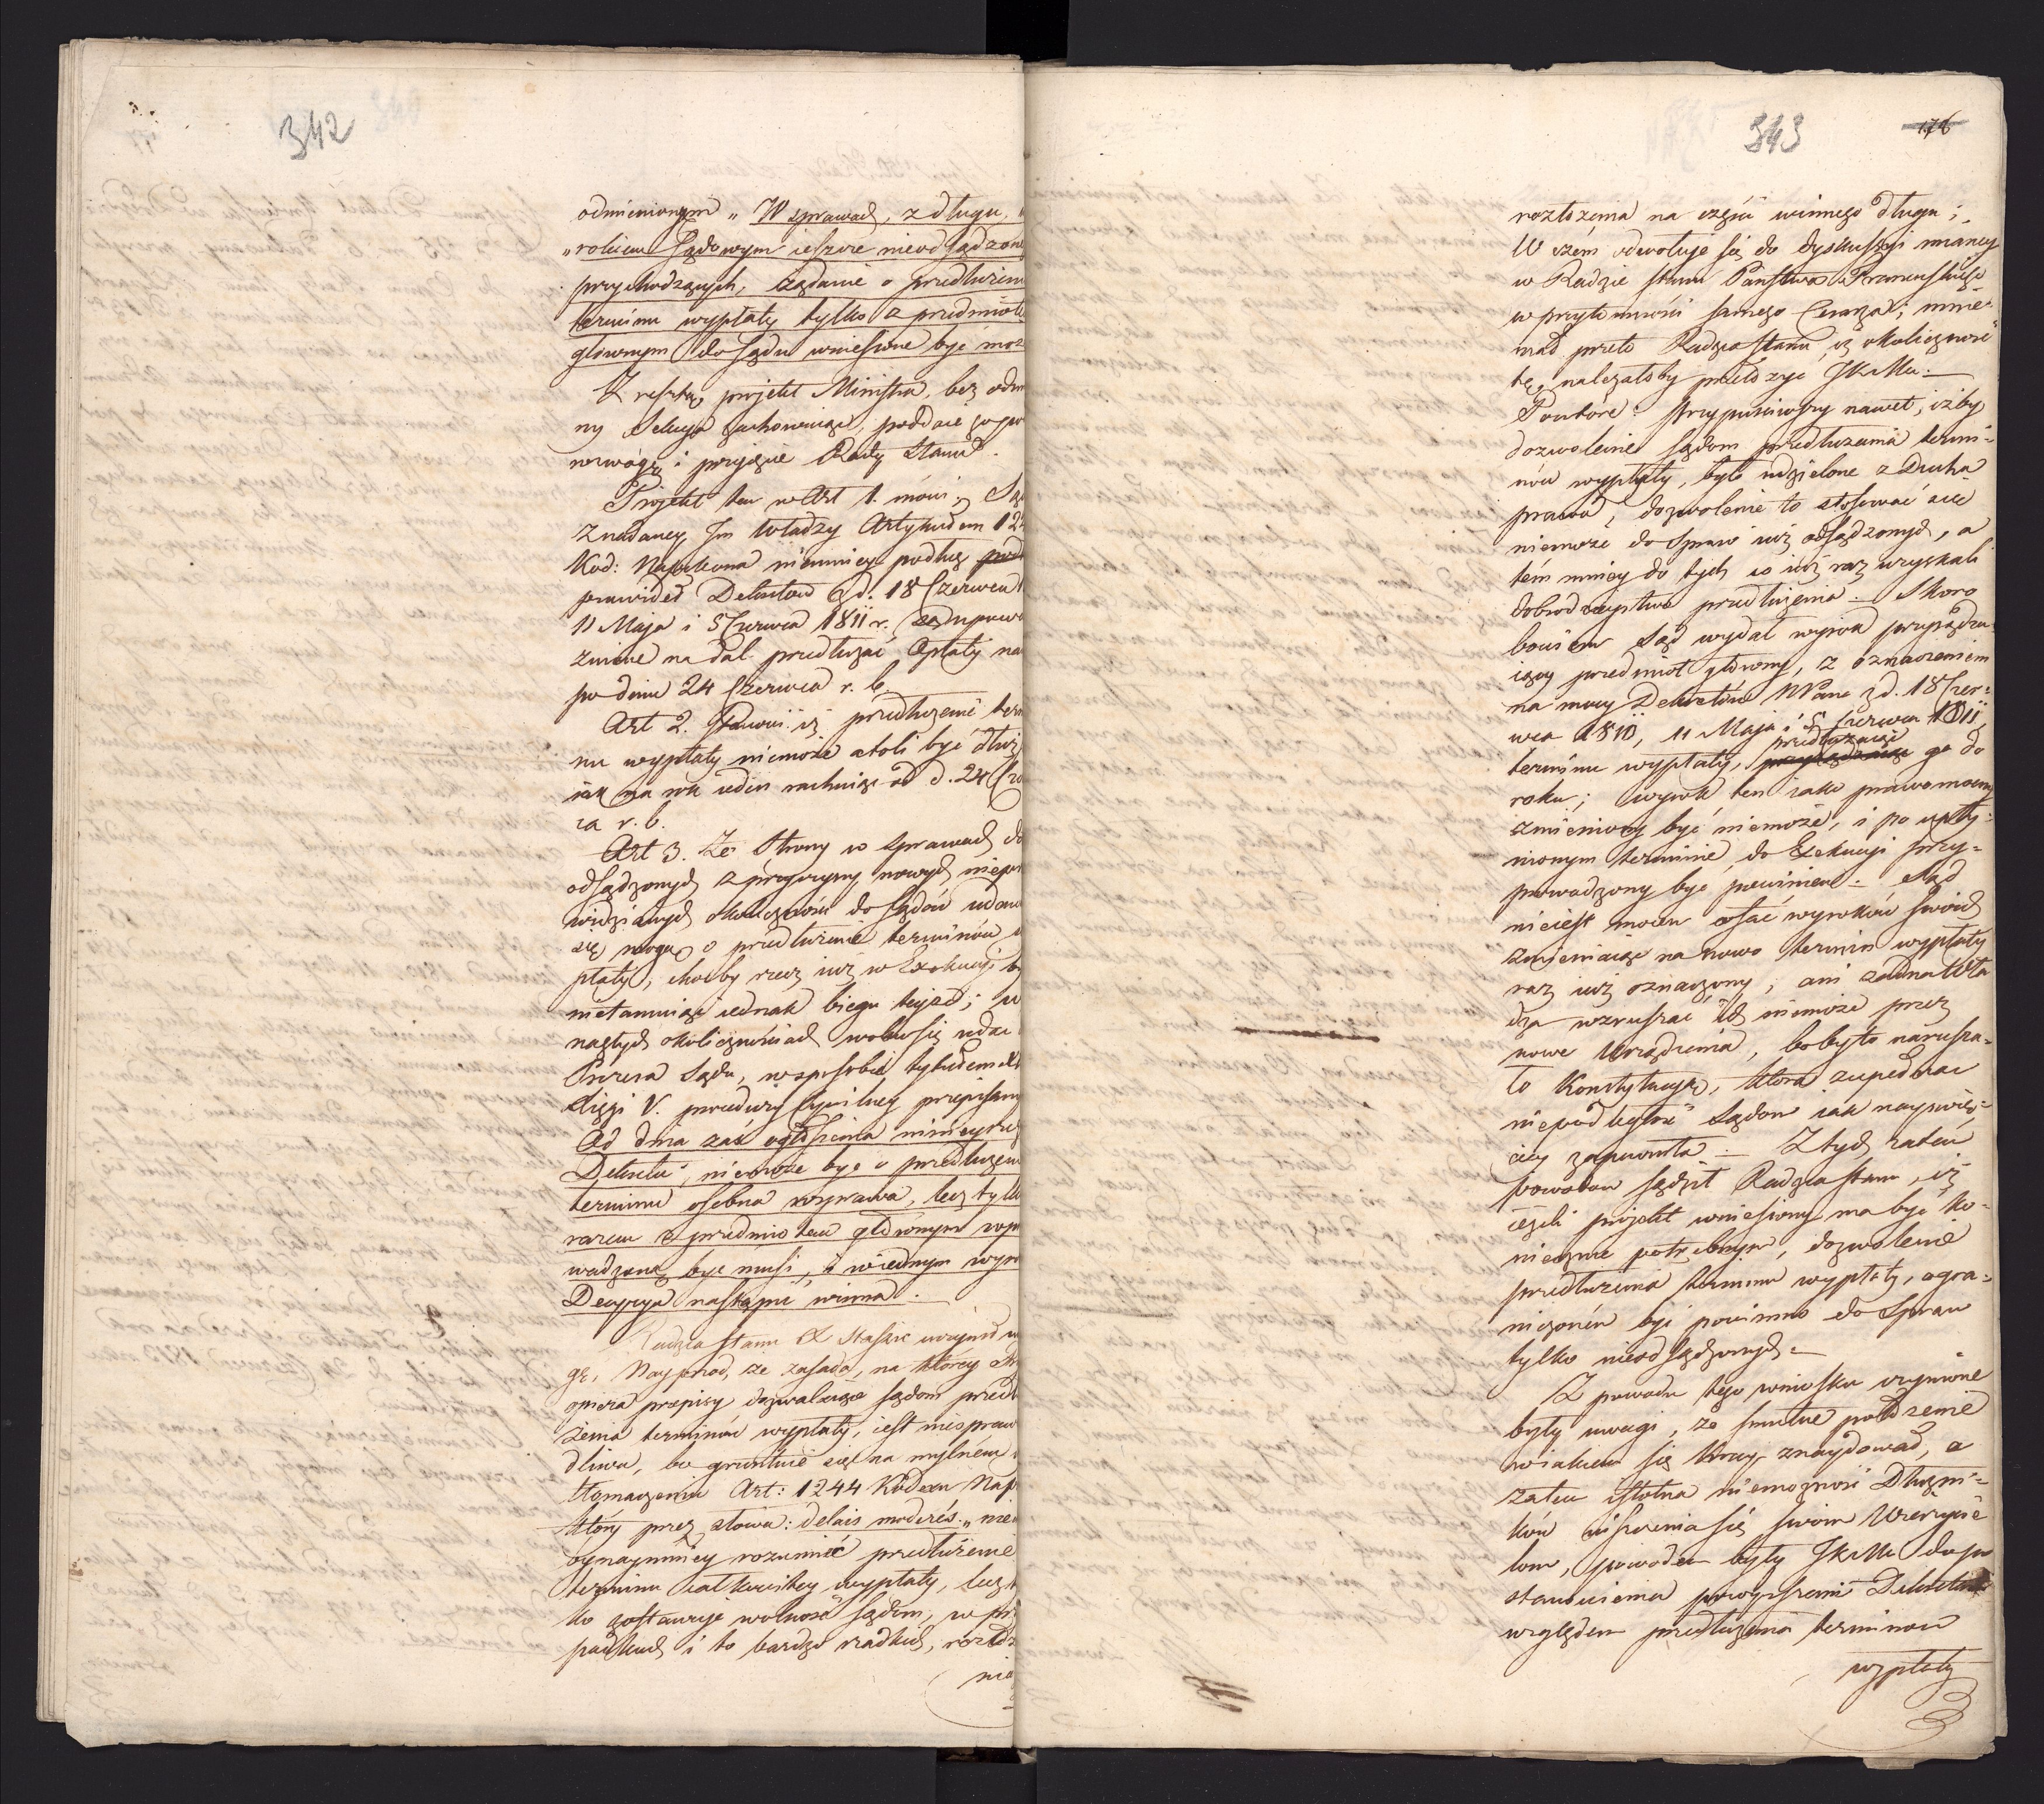 342
odmienionym „ W sprawach, z długu,
„rokiem Sądowym ieszcze nieodsądzone
przychodzących, żądanie o przedłużen
terminu wypłaty tylko z przedmiot
głównym do Sądu wniesione być moż
Z resztą projekt Ministra, bez odm
ny Sekcya zachowując, poddaie go pod
rozwagę i przyjęcie Rady Stanu.
Projekt ten w Art 1. mówi, Są
z nadaney Im władzy Artykułem 124
Kod: Napoleona niemniey podług
prawideł Dekretów z d. 18 Czerwca 1
11 Maja i 5 Czerwca 1811 r. są upowa
żnione nadal przedłużać Opłaty na
po dniu 24 Czerwca r. b.
Art 2. Stanowi iż przedłużenie term
nu wypłaty niemoże atoli być dłuż
iak na rok ieden rachuiąc od d. 24 Cze
ca r. b.
Art 3. Że Strony w sprawach do
odsądzonych z przyczyny nowych niepr
widzianych okoliczności do Sądów udaw
się mogą o przedłużenie terminów w
płaty, choćby rzecz iuż w Exekucyi by
nietamuiąc iednak biegu teyże; w
nagłych okolicznościach wolno się udać
Prezesa Sądu, w sposobie tytułem XI
Księgi V. procedury Cywilney przepisany
Od dnia zaś ogłoszenia ninieyszeg
Dekretu, niemoże być o przedłużen
terminu osobna rozprawa, lecz tylk
razem z przedmiotem głównym wpr
wadzoną być musi, i w iednym wyro
Decyzya nastąpić winna.
Radzca Stanu X Staszic uczynił uw
gę, Nayprzód, że zasada, na którey się
opiera przepisy dozwalaiące sądom przedł
żenia terminów wypłaty, iest niespraw
dliwa, bo gruntuie się na mylnem
tłomaczeniu Art: 1244 Kodexu Nap
który przez słowa: delais moderés „ nie
bynaymniey rozumieć przedłużenie
terminu całkowitey wypłaty, lecz t
ko zostawuie wolność Sądom, w prz
padkach i to bardzo rzadkich, rozło
nia
343
176
rozłożenia na części winnego długu;
W czém odwołuje się do dyskussyi mianey
w Radzie Stanu Państwa Francuskiego
w przytomności samego Cesarza; mnie-
mał przeto Radzca Stanu, iż okoliczność
tę, należałoby przełożyć JKMci. —
Powtóre: Przypuściwszy nawet, iżby
dozwolenie sądom przedłużania termi-
nów wypłaty, było udzielone z Ducha
prawa, dozwolenie to stosować się
niemoże do Spraw iuż odsądzonych, a
tém mniey do tych co iuż raz uzyskali
dobrodzieystwo przedłużenia. — Skoro
bowiem Sąd wydał wyrok przysądza-
iący przedmiot główny, z oznaczeniem
na mocy Dekretów NPana z d. 18 Czer-
wca 1810, 11 Maja i 5 Czerwca 1811,
terminu wypłaty, przedłużaiąc go do
roku; wyrok ten iako prawomocny
zmieniony być niemoże, i po upły-
nionym terminie, do Exekucyi przy-
prowadzony być powinien. — Sąd
nieiest mocen cofać wyroków swoich
zmieniaiąc na nowo termin wypłaty
raz iuż oznaczony, ani żadna Wła
dza wzruszać ich niemoże przez
nowe Urządzenia, bo by to narusza-
ło Konstytucyą, która zupełnie
niepodległość Sądów iak nayuroczy-
ściey zapewniła. — Z tych zatem
powodów sądził Radzca Stanu, iż
ieżeli projekt wniesiony ma być ko-
niecznie potrzebnym, dozwolenie
przedłużenia terminu wypłaty, ogra-
niczoném być powinno do Spraw
tylko nieodsądzonych. —
Z powodu tego wniosku uczynione
były uwagi, że smutne położenie
w iakiem się Kray znaydował, a
zatem istotna niemożność Dłużni-
ków uiszczenia się swoim Wierzycie
lom, powodem były JKMci do po
stanowienia powyższemi Dekretami
względem przedłużenia terminów
wypłaty